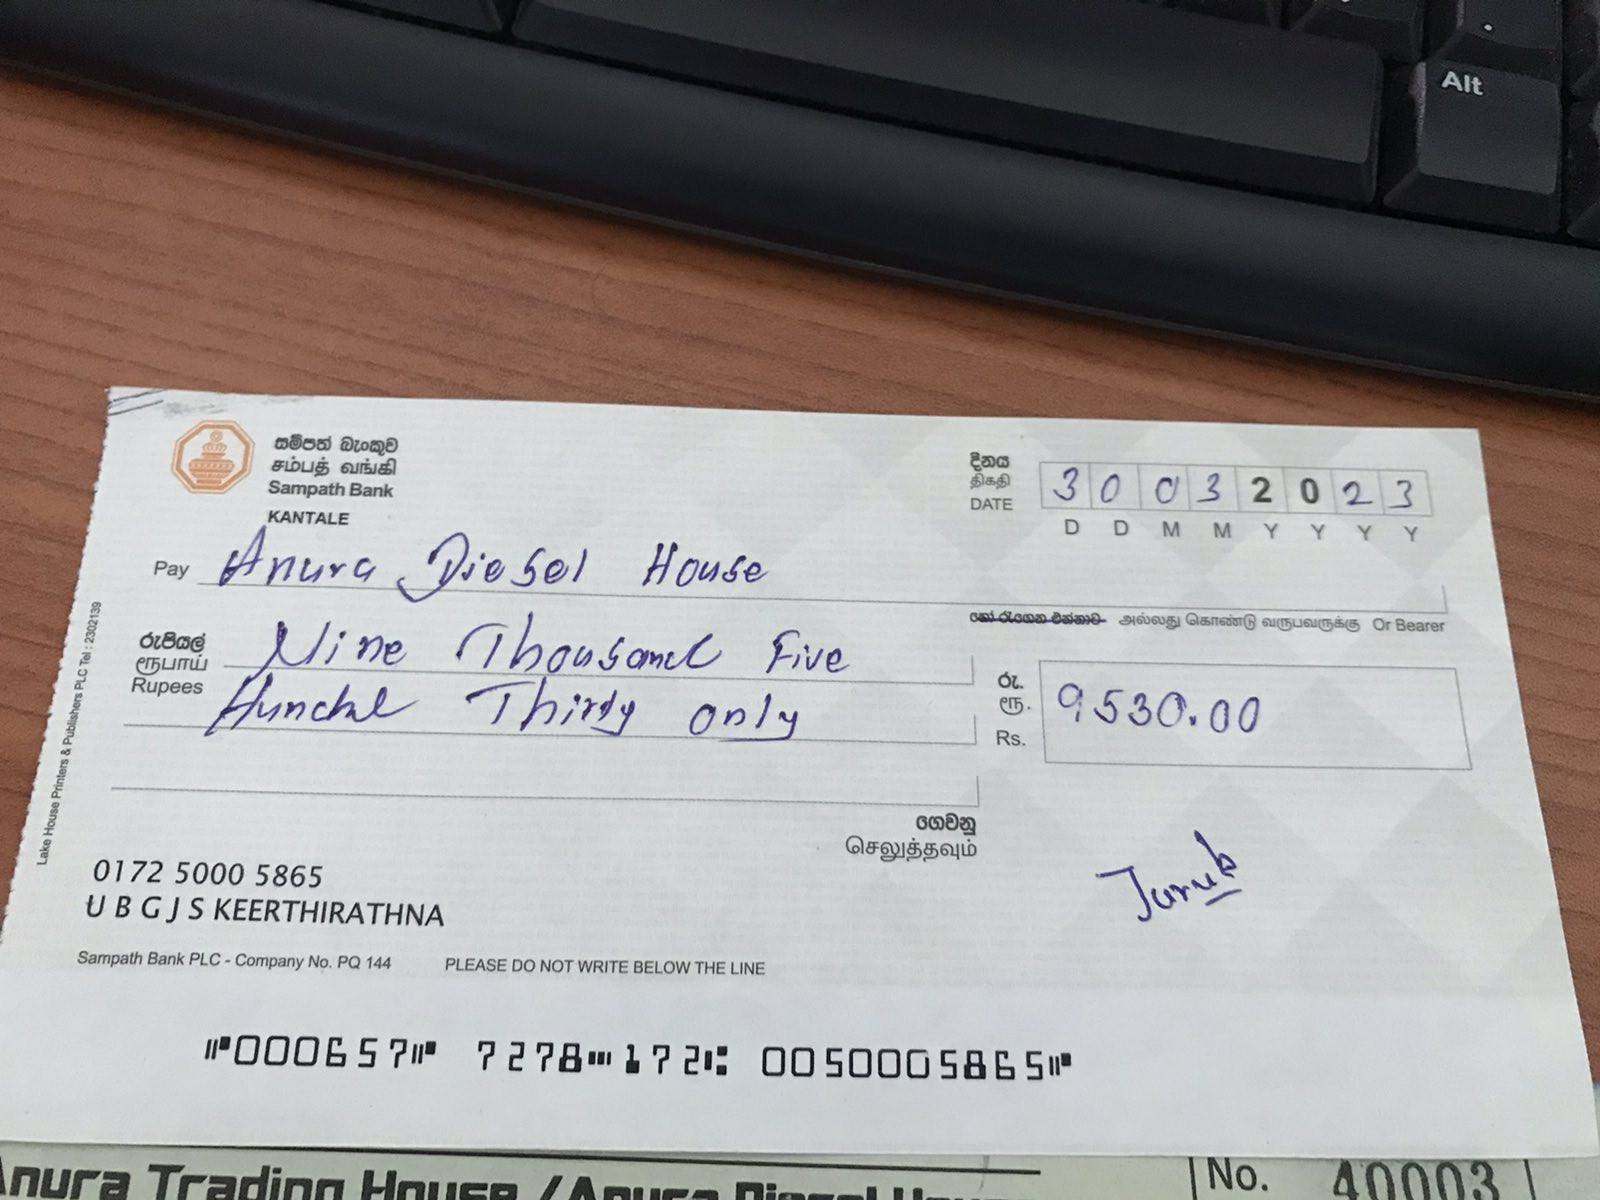 Alt
සම්පත් බැංකුව
சம்பத் வங்கி
Sampath Bank
KANTALE
දිනය
திகதி
DATE
3 0 0 3 2 0 2 3
D D M M Y Y Y Y
Pay Anura Diesel House
හෝ රැගෙන එන්නාට அல்லது கொண்டு வருபவருக்கு Or Bearer
රුපියල්
ரூபாய்
Rupees
Nine Thousand Five
Hundred Thirty only
රු.
ரூ.
Rs.
9,530.00
ගෙවනු
செலுத்தவும்
Lake House Printers & Publishers PLC Tel : 2302139
0172 5000 5865
U B G J S KEERTHIRATHNA
Sampath Bank PLC - Company No. PQ 144 PLEASE DO NOT WRITE BELOW THE LINE
⑈000657⑈ 7278⑉172⑆ 0050005865⑈
Anura Trading House / Anura Diesel House
No. 40003